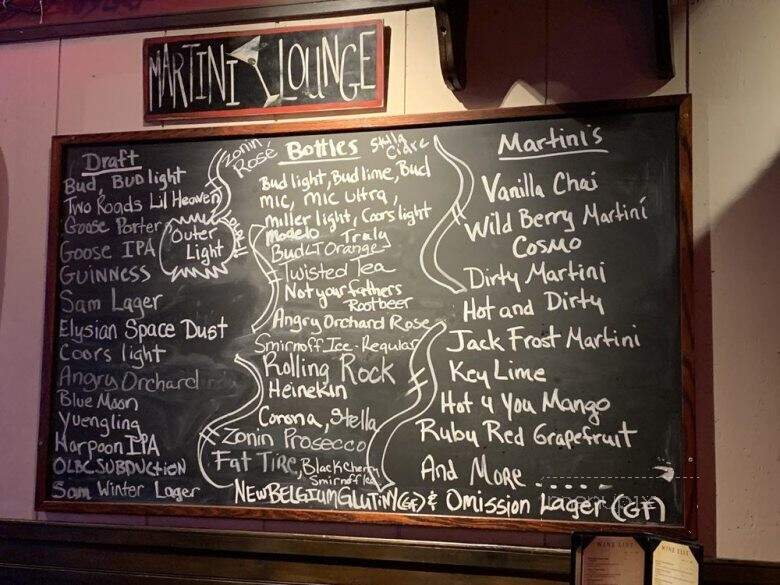 MARTINI LOUNGE
Draft
Bud, Bud light
Two Roads Lil Heaven
Goose Porter
Outer
Light
Goose IPA
GUINNESS
Sam Lager
Elysian Space Dust
Coors light
Angry Orchard
Blue Moon
Yuengling
Harpoon IPA
OLBC SUBDUCTION
Sam Winter Lager
Zonin
Rosé
Bottles
Stella
Cidre
Bud light, Bud lime, Bud
Mic, Mic Ultra,
Miller light, Coors light
Modelo Truly
Bud LT Orange
Twisted Tea
Not your fathers
Rootbeer
Angry Orchard Rose
Smirnoff Ice - Regular
Rolling Rock
Heinekin
Corona, Stella
Zonin Prosecco
Fat TIRE, Black Cherry
Smirnoff Ice
NEW BELGIUM GLUTINY (GF) & Omission Lager (GF)
Martini's
Vanilla Chai
Wild Berry Martini
Cosmo
Dirty Martini
Hot and Dirty
Jack Frost Martini
Key Lime
Hot 4 You Mango
Ruby Red Grapefruit
And More ......
WINE LIST
WINE LIST